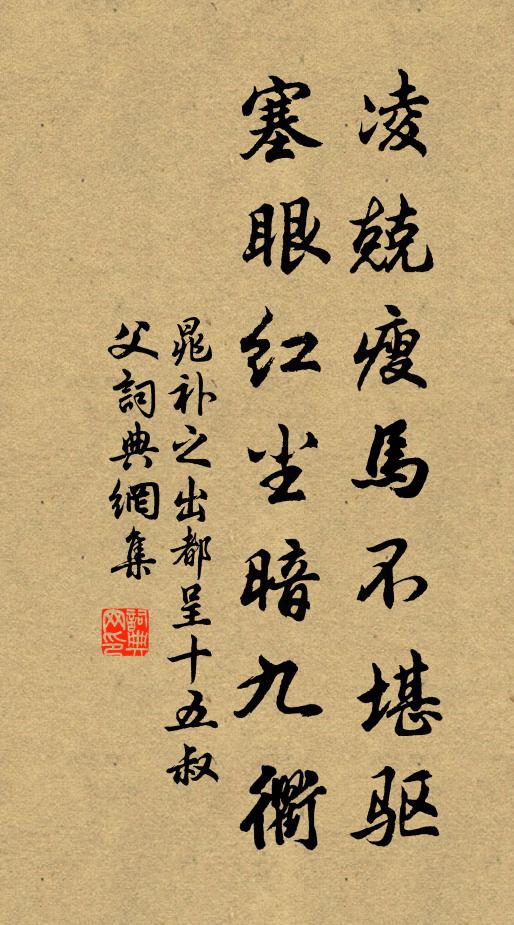 凌兢瘦馬不堪驱
塞眼红尘暗九衢
晁补之出都呈十五叔
父詞典網集
詞典网印